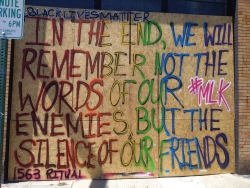 NOTE
PARKING
6PM
#BLACKLIVESMATTER
IN THE END, WE WILL
REMEMBER NOT THE
WORDS OF OUR
#MLK
ENEMIES, BUT THE
SILENCE OF OUR FRIENDS
1563 RITUAL